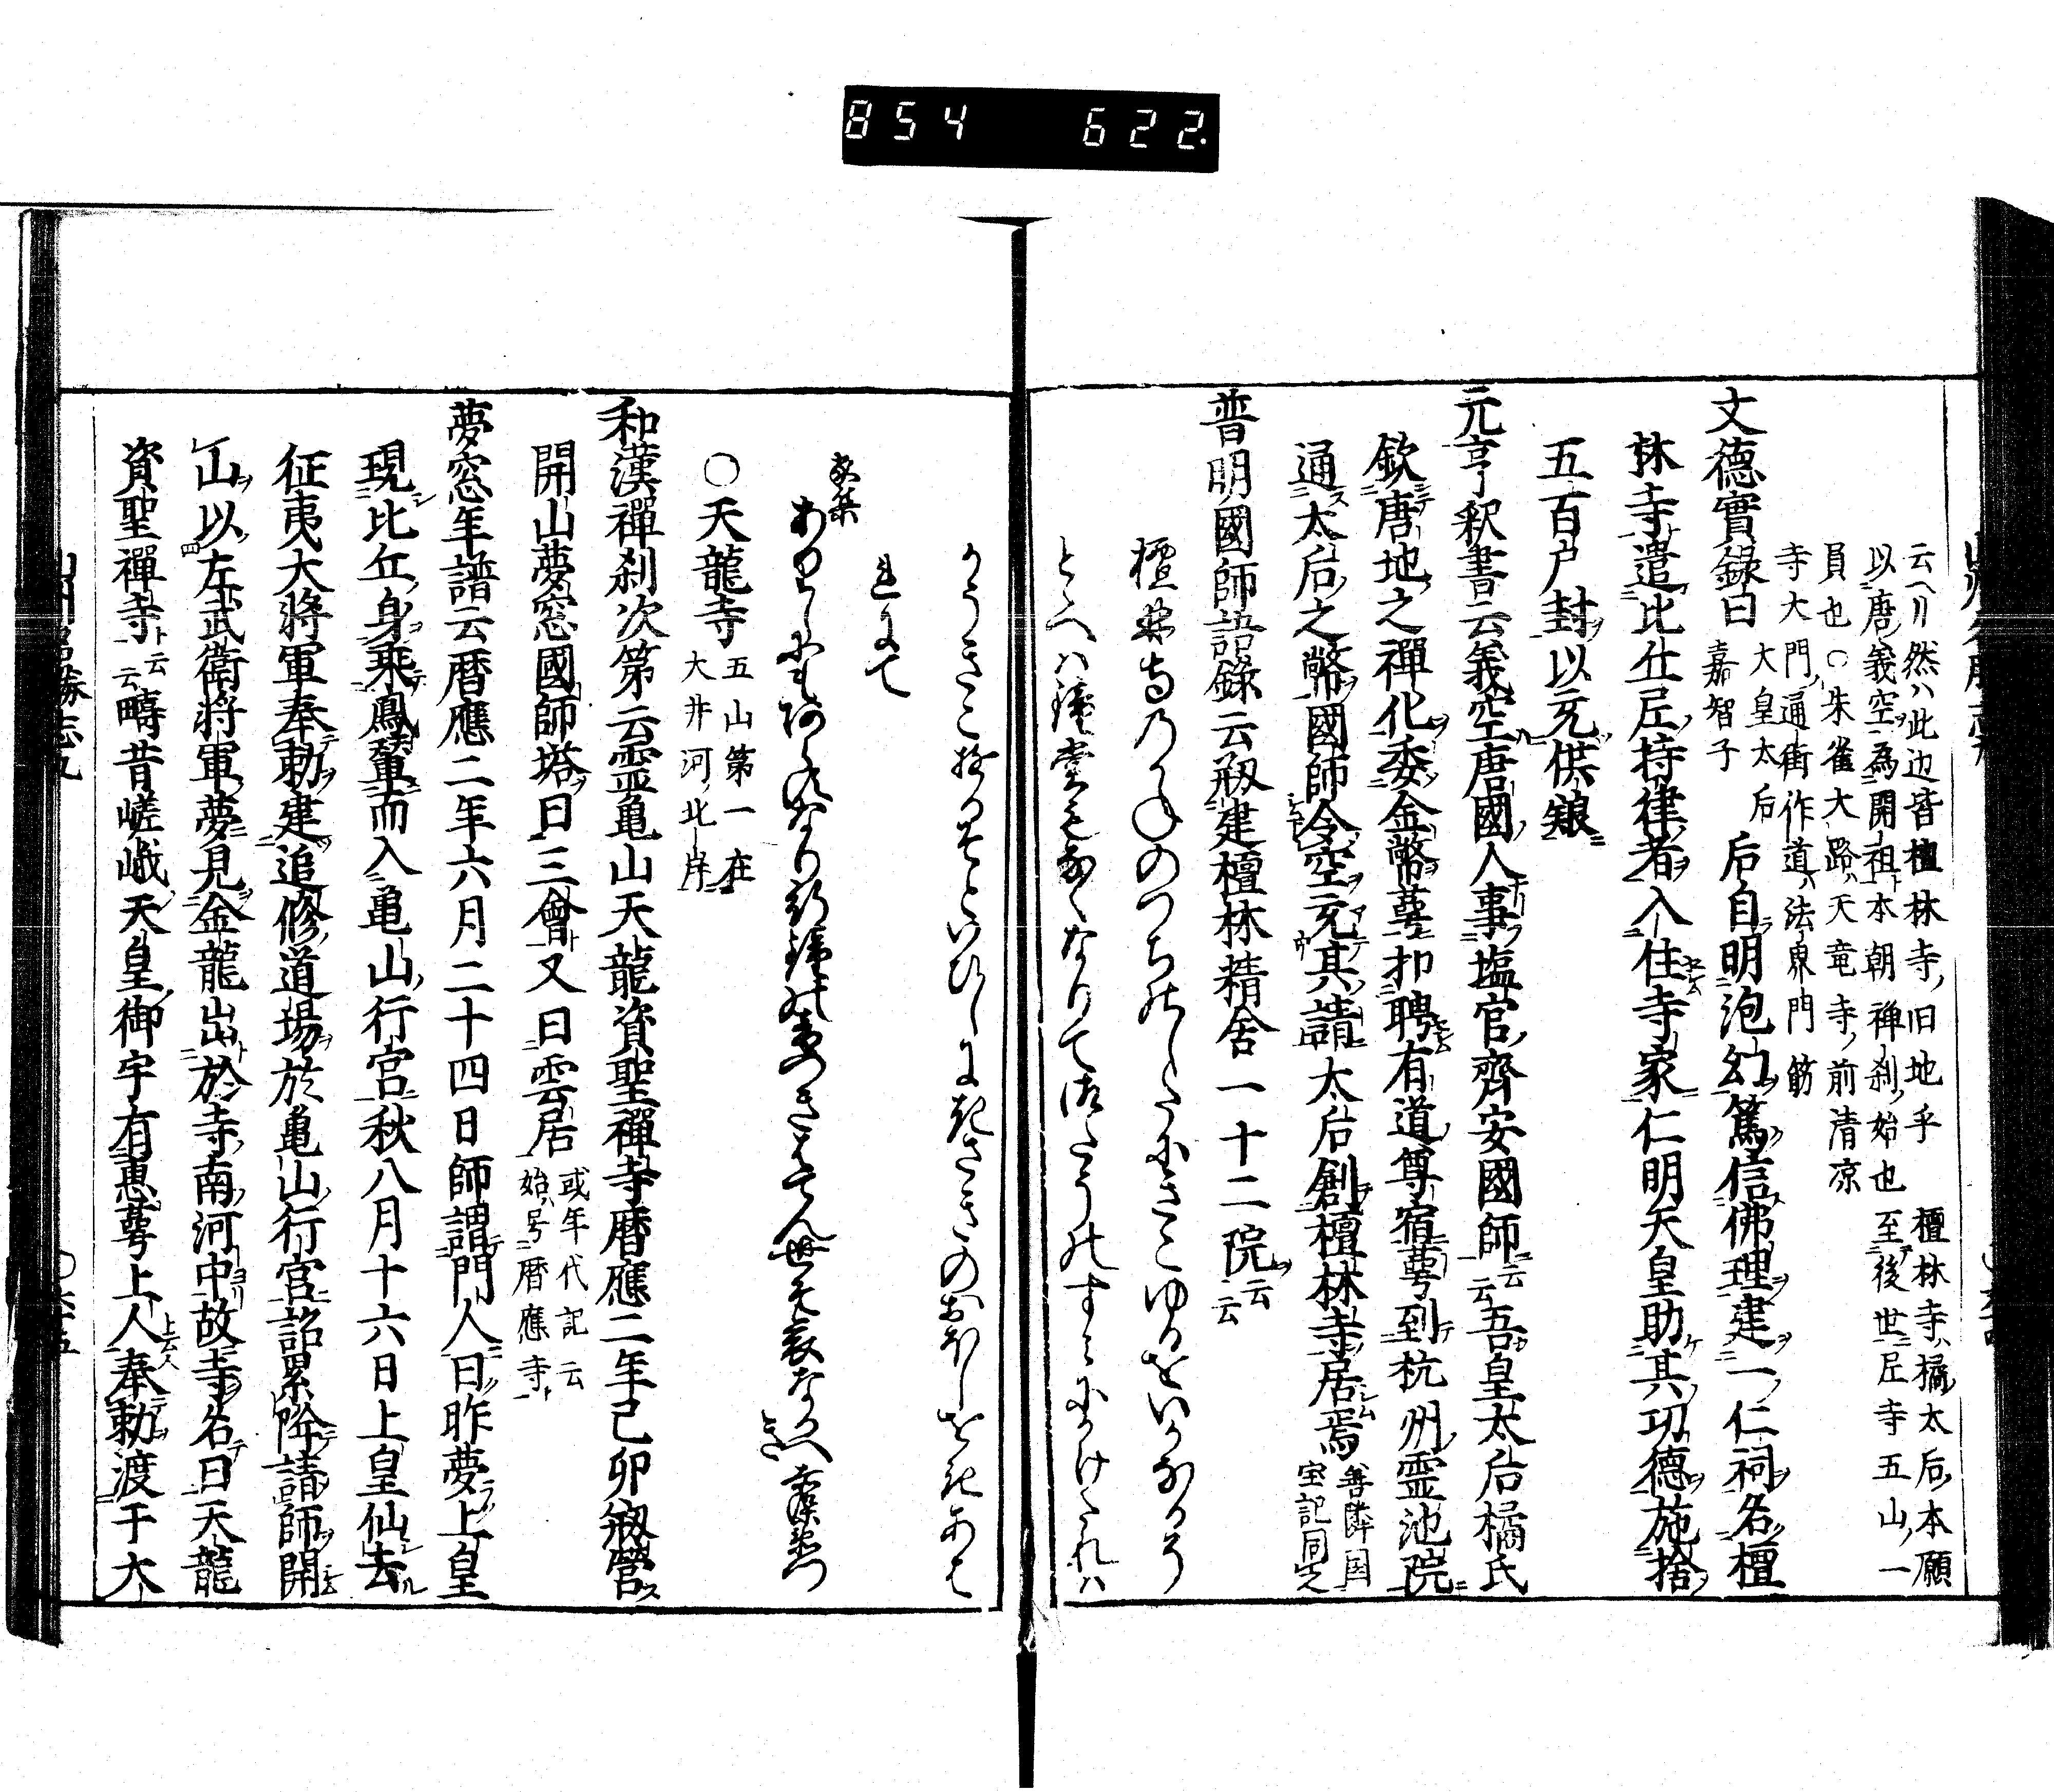 854 622.
云ヘリ然ハ此辺皆檀林寺ノ旧地乎
檀林寺ハ橘太后ノ本願
以唐ノ義空為開祖本朝禅刹ノ始也
至後世尼寺五山ノ一
員也○朱雀大路ハ天竜寺ノ前清凉
寺大門ノ通街作道ハ法界門筋
文德實録曰
大皇太后
嘉智子
后自明泡幻篤信佛理建一仁祠名檀
林寺遣比丘尼持律者入住寺家仁明天皇助其功德施捨
五百戸封以充供粮
元亨釈書云義空唐國人事塩官齊安國師云云吾皇太后橘氏
欽唐地之禪化委金幣蕚扣聘有道尊宿蕚到杭州霊池院
通太后之幣國師令空充其請太后創檀林寺居焉
善隣国
宝記同之
普明國師語録云剏建檀林精舍一十二院云云
檀林寺のかねのつちのしたにきこゆるをいかなるそ
とへは鐘堂もなくなりて御たうのすみにかけたれは
かうきこゆるそといひしにきさきのおほしをきあは
れにて
家集
ありしにもあらすなり行鐘の音つきはてん世そ哀なるへき
○天龍寺
五山第一在
大井河ノ北岸
和漢禪刹次第云霊亀山天龍資聖禪寺暦應二年己卯剏營
開山夢窓國師塔曰三會又曰雲居
或年代記云
始ハ号暦應寺
夢窓年譜云暦應二年六月二十四日師謂門人曰昨夢上皇
現比丘身乘鳳輦而入亀山行宮秋八月十六日上皇仙去
征夷大將軍奉勅建追修道場於亀山行宮詔累降請師開
山以左武衛將軍夢見金龍出於寺南河中故寺名曰天龍
資聖禪寺云云疇昔嵯峨天皇御宇有惠蕚上人奉勅渡于大